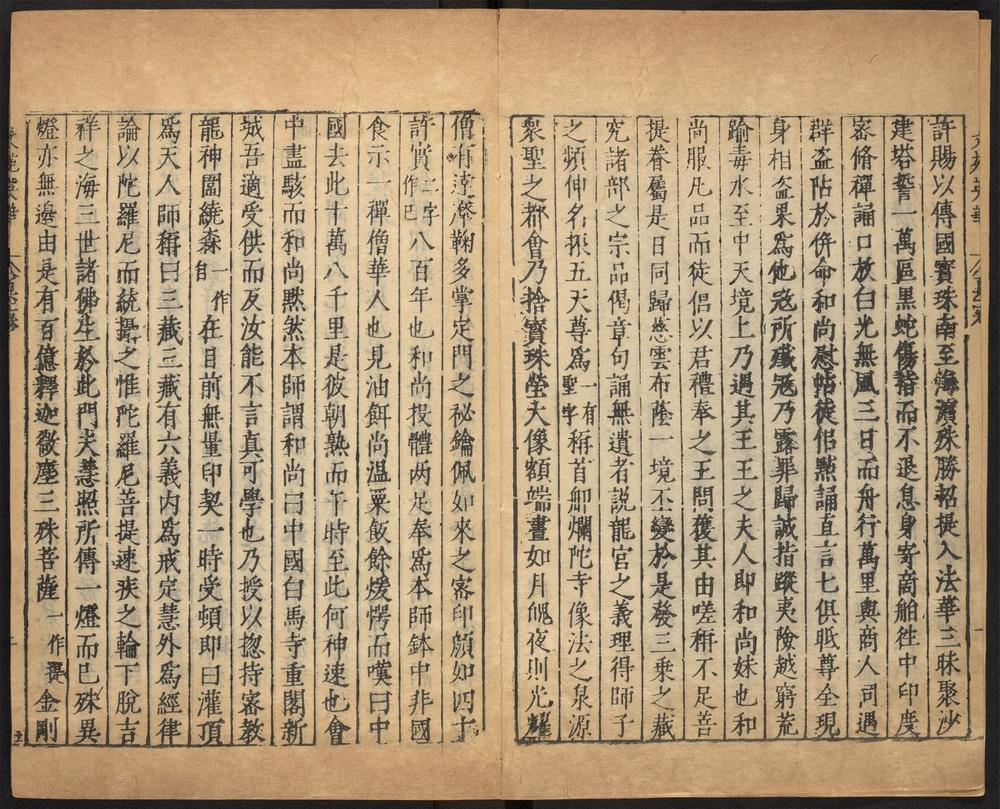 許賜以傳國寶珠南至海濱殊勝招提入法華三昧聚沙
建塔誓一萬區黑蛇傷指而不退息身寄商舶往中印度
密脩禪誦口放白光無風三日而舟行萬里與商人同遇
群盜阽於併命和尚慰帖徒侶黙誦真言七俱胝尊全現
身相盜果為他冦所殲冦乃露罪歸誠指蹤夷險越窮荒
踰毒水至中天境上乃遇其王王之夫人即和尚妹也和
尚服凡品而徒侶以君禮奉之王問穫其由嗟稱不足善
提眷屬是日同歸慈雲布蔭一境丕變於是發三乗之藏
究諸部之宗品偈章句誦無遺者說龍宮之義理得師子
之頻伸名振五天尊為一有聖字稱首郍爛陀寺像法之泉源
衆聖之都會乃捨寶珠瑩大像額端晝如月魄夜則光耀
僧有達摩鞠多掌定門之秘鑰佩如來之密印顔如四十
許實二字作巳八百年也和尚投體两足奉為本師鉢中非國
食示一禪僧華人也見油餌尚温粟飯餘煖愕而嘆曰中
國去此十萬八千里是彼朝熟而午時至此何神速也會
中盡駭而和尚黙然本師謂和尚曰中國白馬寺重閣新
城吾適受供而反汝能不言真可學也乃授以揔持密教
龍神圍繞森一作自在目前無量印契一時受頓即曰灌頂
爲天人師稱曰三藏三藏有六義内爲戒定慧外爲經律
論以陀羅尼而統攝之惟陀羅尼菩提速疾之輪下脫吉
祥之海三世諸佛生於此門夫慧照所傳一燈而巳殊異
燈亦無邊由是有百億釋迦微塵三殊菩薩一作提金剛